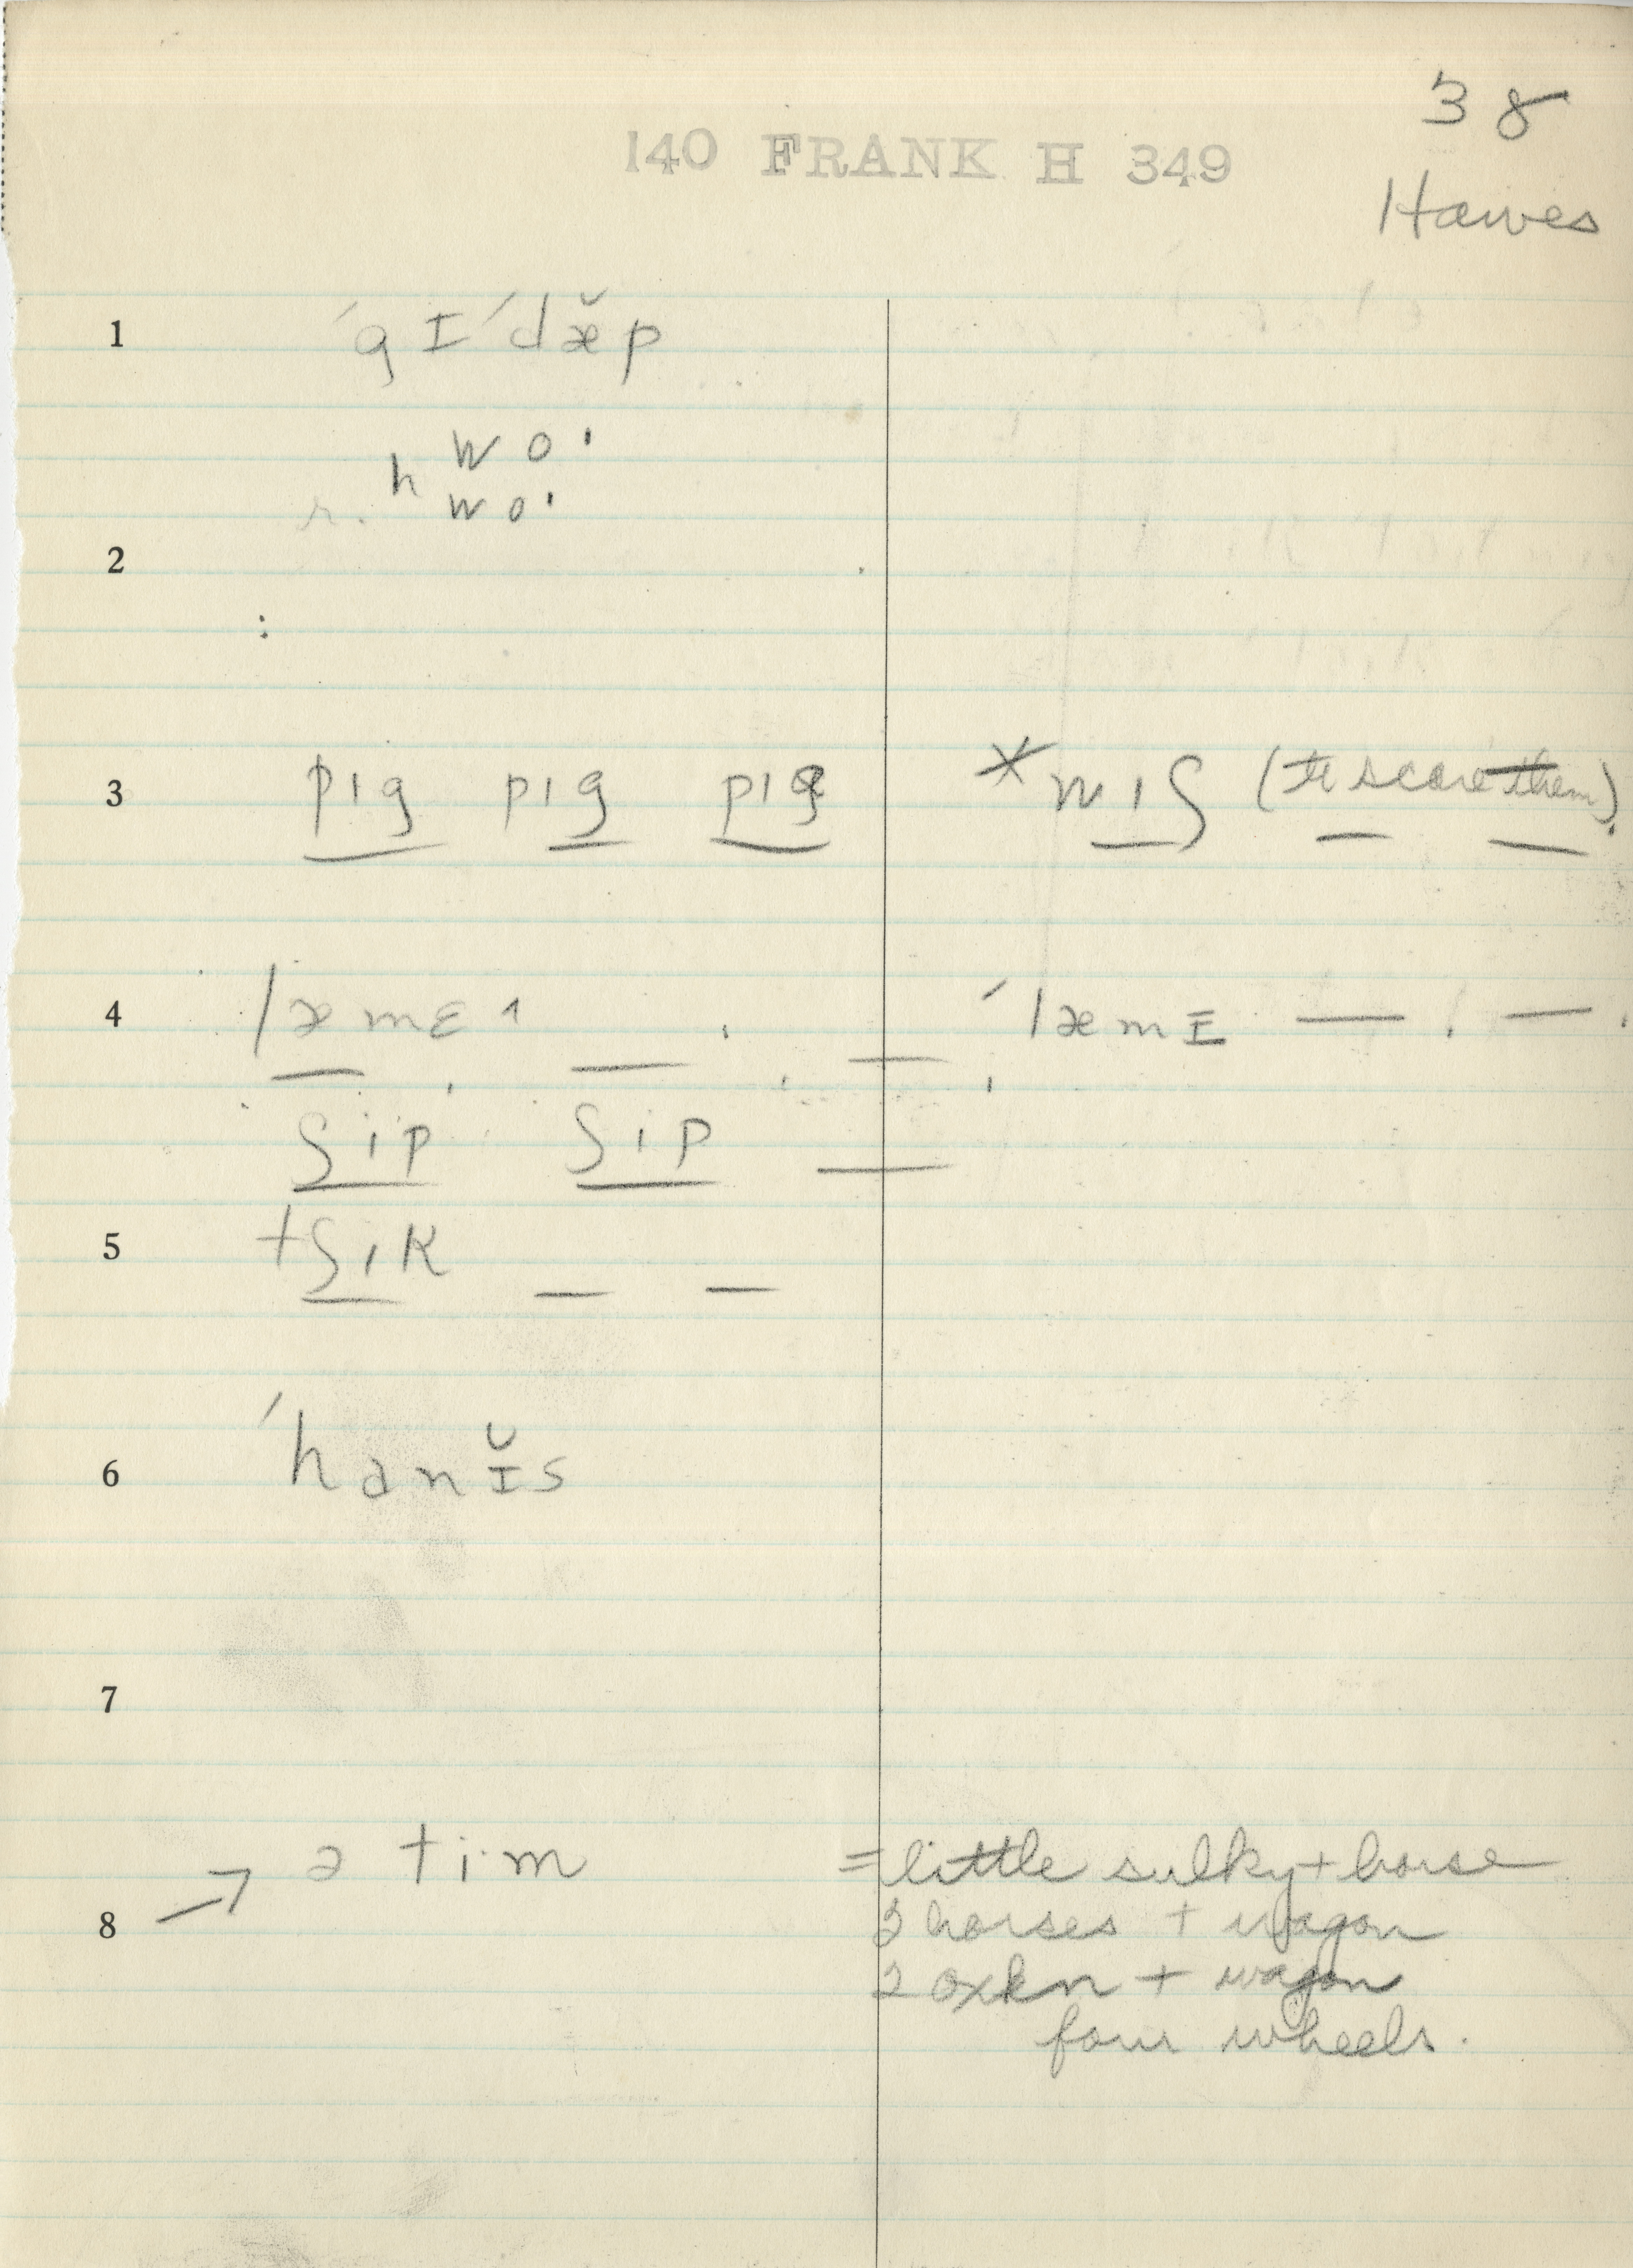 38
140 FRANK H 349
Hawes
1 ˈgɪˈdæ̆p
h wo·
wo·
2
3 pɪg pɪg pɪg *wɪʃ (to scare them).
4 læmɛ ˈlæmɪ — , — .
ʃip ʃip —
5 tʃɪk — —
6 ˈhanɪ̆s
7
8 → ə tim = little sulky + horse
3 horses + wagon
2 oxen + wagon
four wheels.